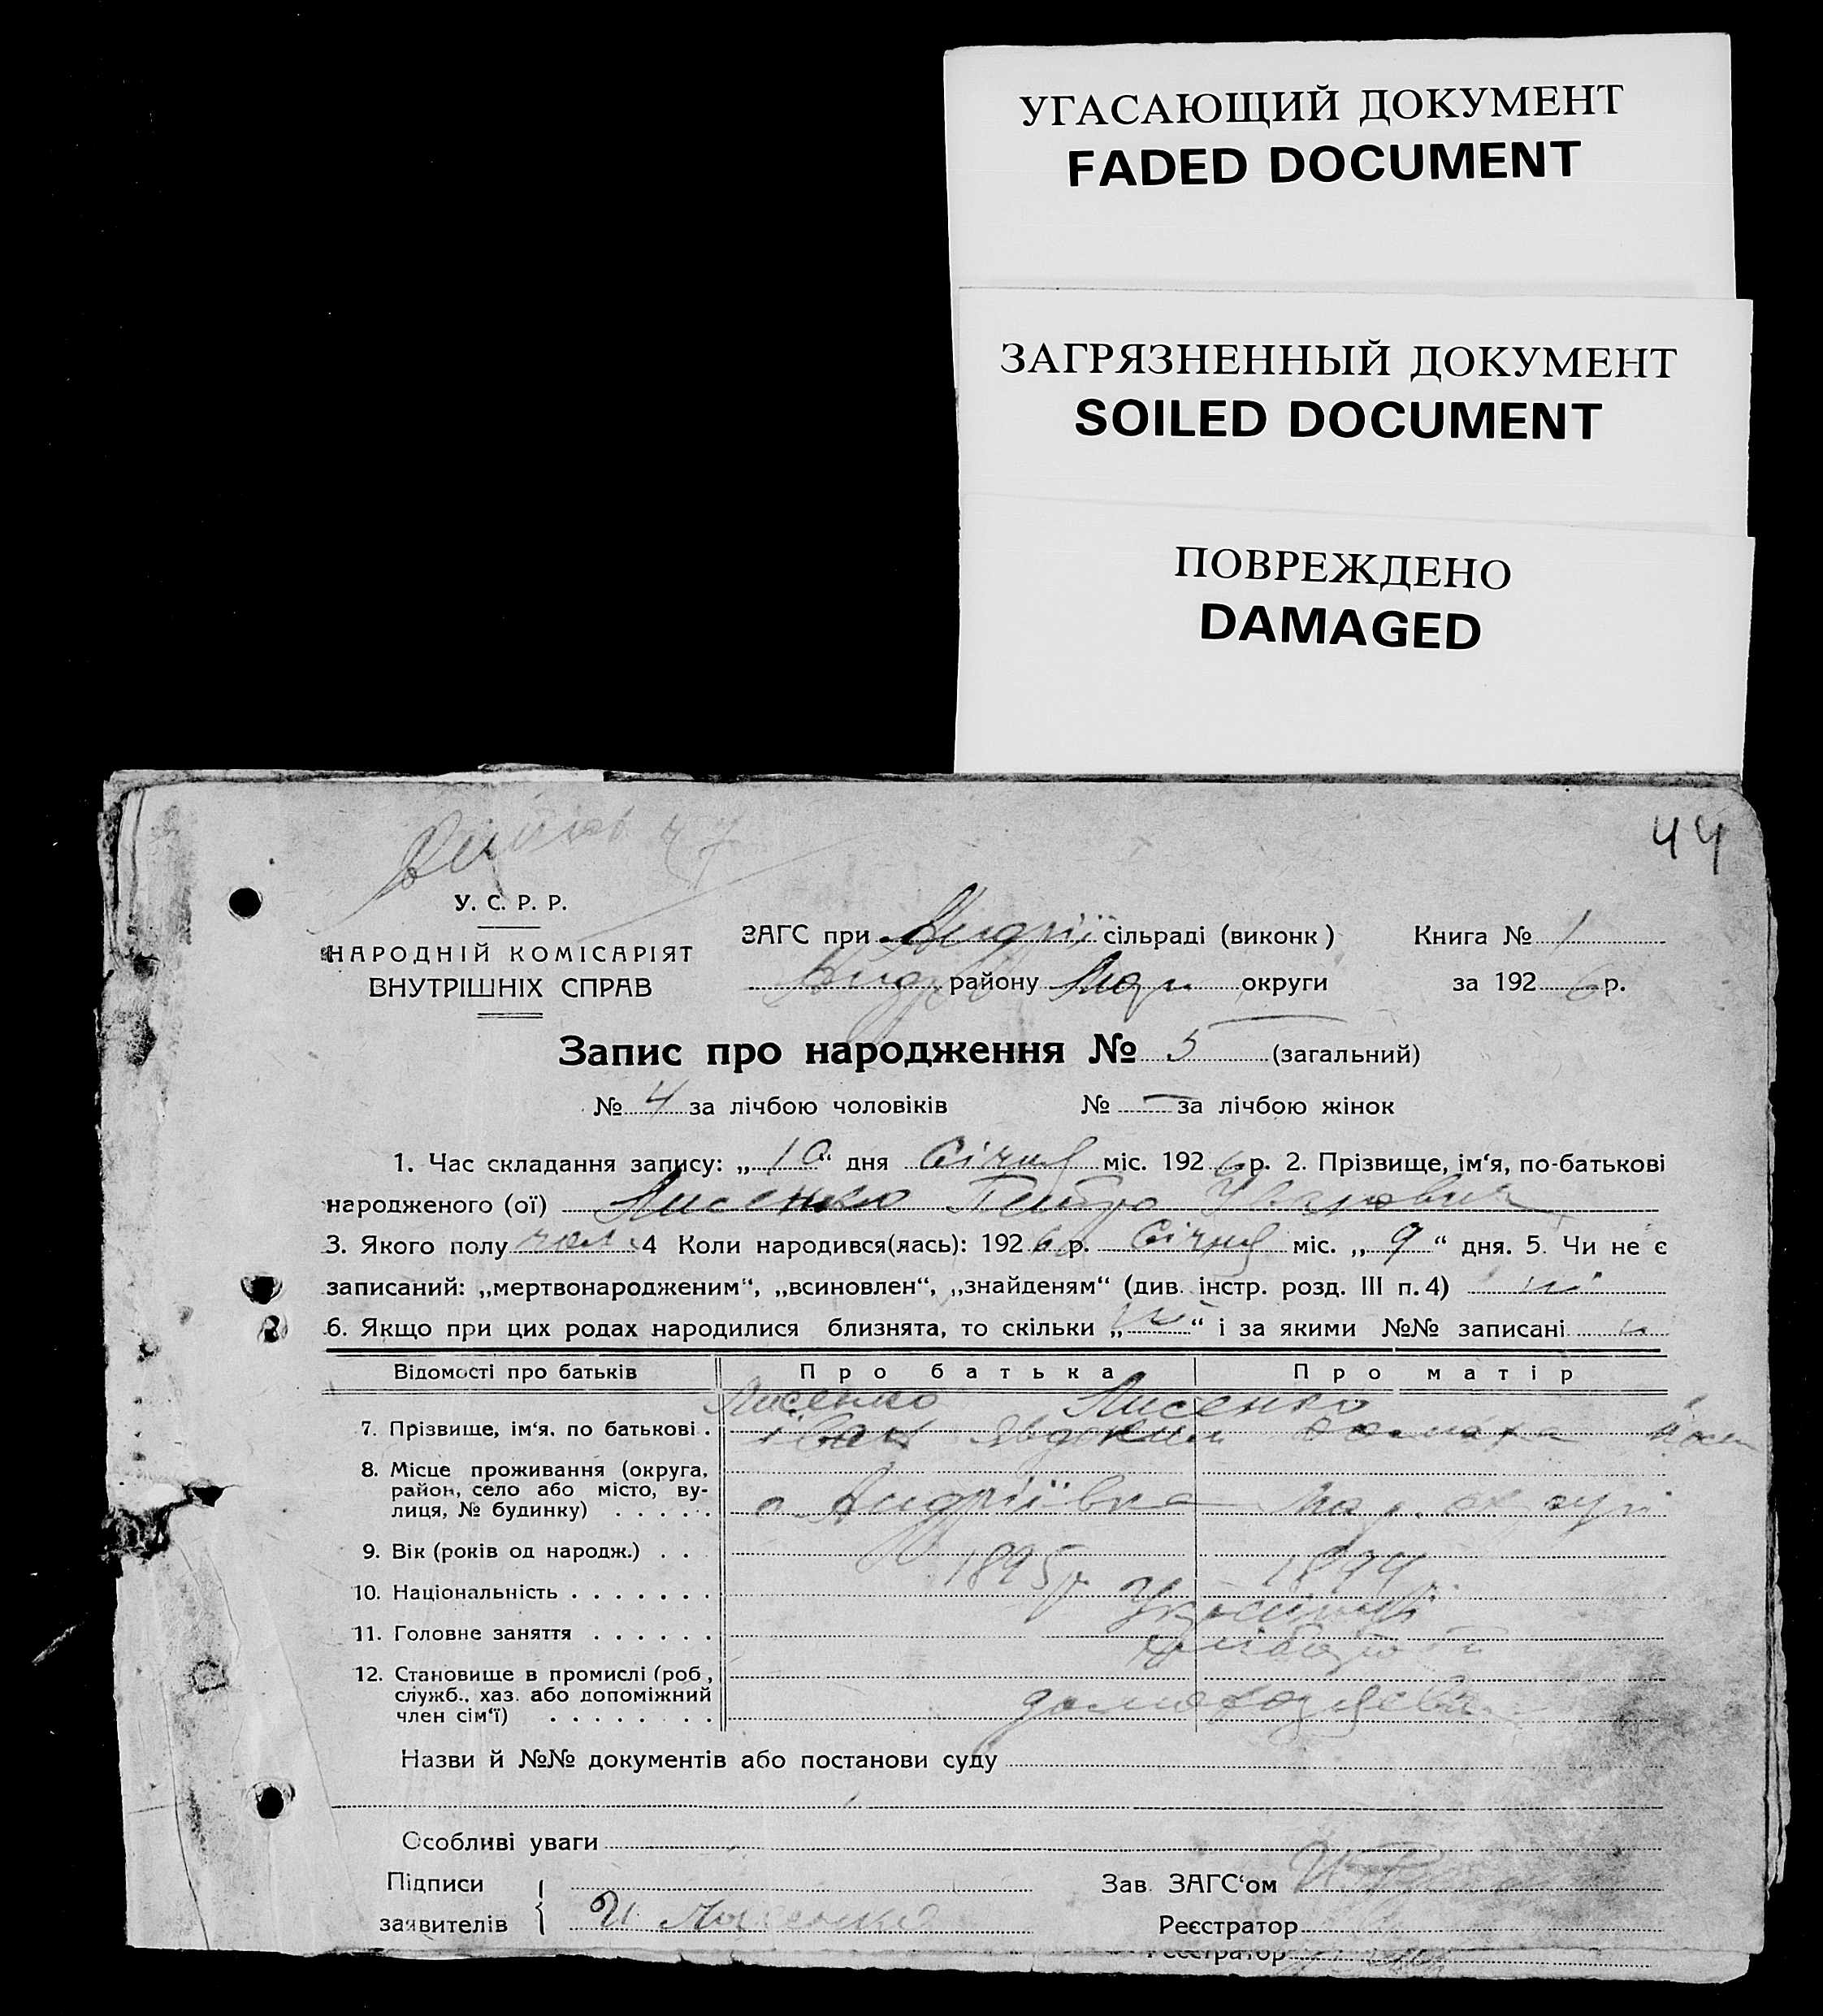 УГАСАЮЩИЙ ДОКУМЕНТ
FADED DOCUMENT
ЗАГРЯЗНЕННЫЙ ДОКУМЕНТ
SOILED DOCUMENT
ПОВРЕЖДЕНО
DAMAGED
44
У. С. Р. Р.
НАРОДНІЙ КОМІСАРІЯТ
ВНУТРІШНІХ СПРАВ
ЗАГС при Андрії сільраді (виконк) Книга № 1
району Мар округи за 1926 р.
Запис про народження № 5 (загальний)
№ 4 за лічбою чоловіків № — за лічбою жінок
1. Час складання запису: „10“ дня Січня міс. 1926 р. 2. Прізвище, ім‘я, по-батькові
народженого (ої) Лисенко Петро Іванович
3. Якого полу чол. 4 Коли народився(лась): 1926 р. Січня міс. „9“ дня. 5. Чи не є
записаний: „мертвонародженим“, „всиновлен“, „знайденям“ (див. інстр. розд. III п. 4) ні
6. Якщо при цих родах народилися близнята, то скільки „ні“ і за якими №№ записані
Відомості про батьків Про батька Про матір
Лисенко Лисенко
7. Прізвище, ім‘я, по батькові . Іван Явдоким
8. Місце проживання (округа,
район, село або місто, ву-
лиця, № будинку) . . . . . с Андріївка Мар. округи
9. Вік (років од народж.) . . . 1895 р
10. Національність . . . . . . .
11. Головне заняття . . . . . .
12. Становище в промислі (роб.,
служб., хаз. або допоміжний
член сім‘ї) . . . . . . . .
Назви й №№ документів або постанови суду
Особливі уваги
Підписи Зав. ЗАГС‘ом
заявителів И Лисенко Реєстратор
Реєстратор